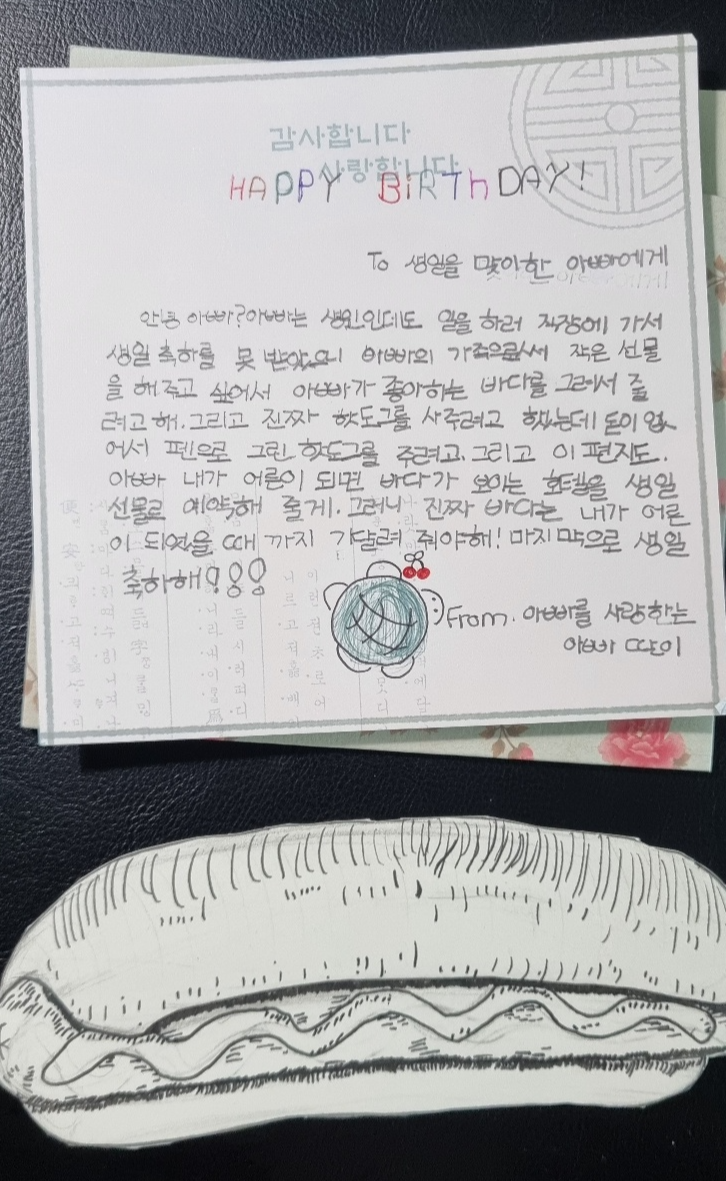 감사합니다
사랑합니다
HAPPY BiRThDAY!
To 생일을 맞이한 아빠에게
안녕 아빠? 아빠는 생일인데도 일을 하러 직장에 가서
생일 축하를 못 받았으니 아빠의 가족으로써 작은 선물
을 해주고 싶어서 아빠가 좋아하는 바다를 그려서 줄
려고 해. 그리고 진짜 핫도그를 사주려고 했는데 돈이 없
어서 펜으로 그린 핫도그를 주려고. 그리고 이 편지도.
아빠 내가 어른이 되면 바다가 보이는 호텔을 생일
선물로 예약해 줄게. 그러니 진짜 바다는 내가 어른
이 되었을 때 까지 기달려 줘야해! 마지막으로 생일
축하해!!!
From. 아빠를 사랑하는
아빠 딸이